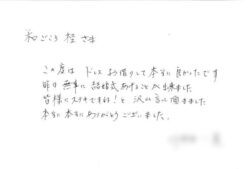 和ごころ 橙 さま
この度は ドレスお借りして本当に良かったです
昨日 無事に 結婚式あげることが出来ました
皆様にステキですね!と 沢山言って頂きました
本当に本当にありがとうございました。